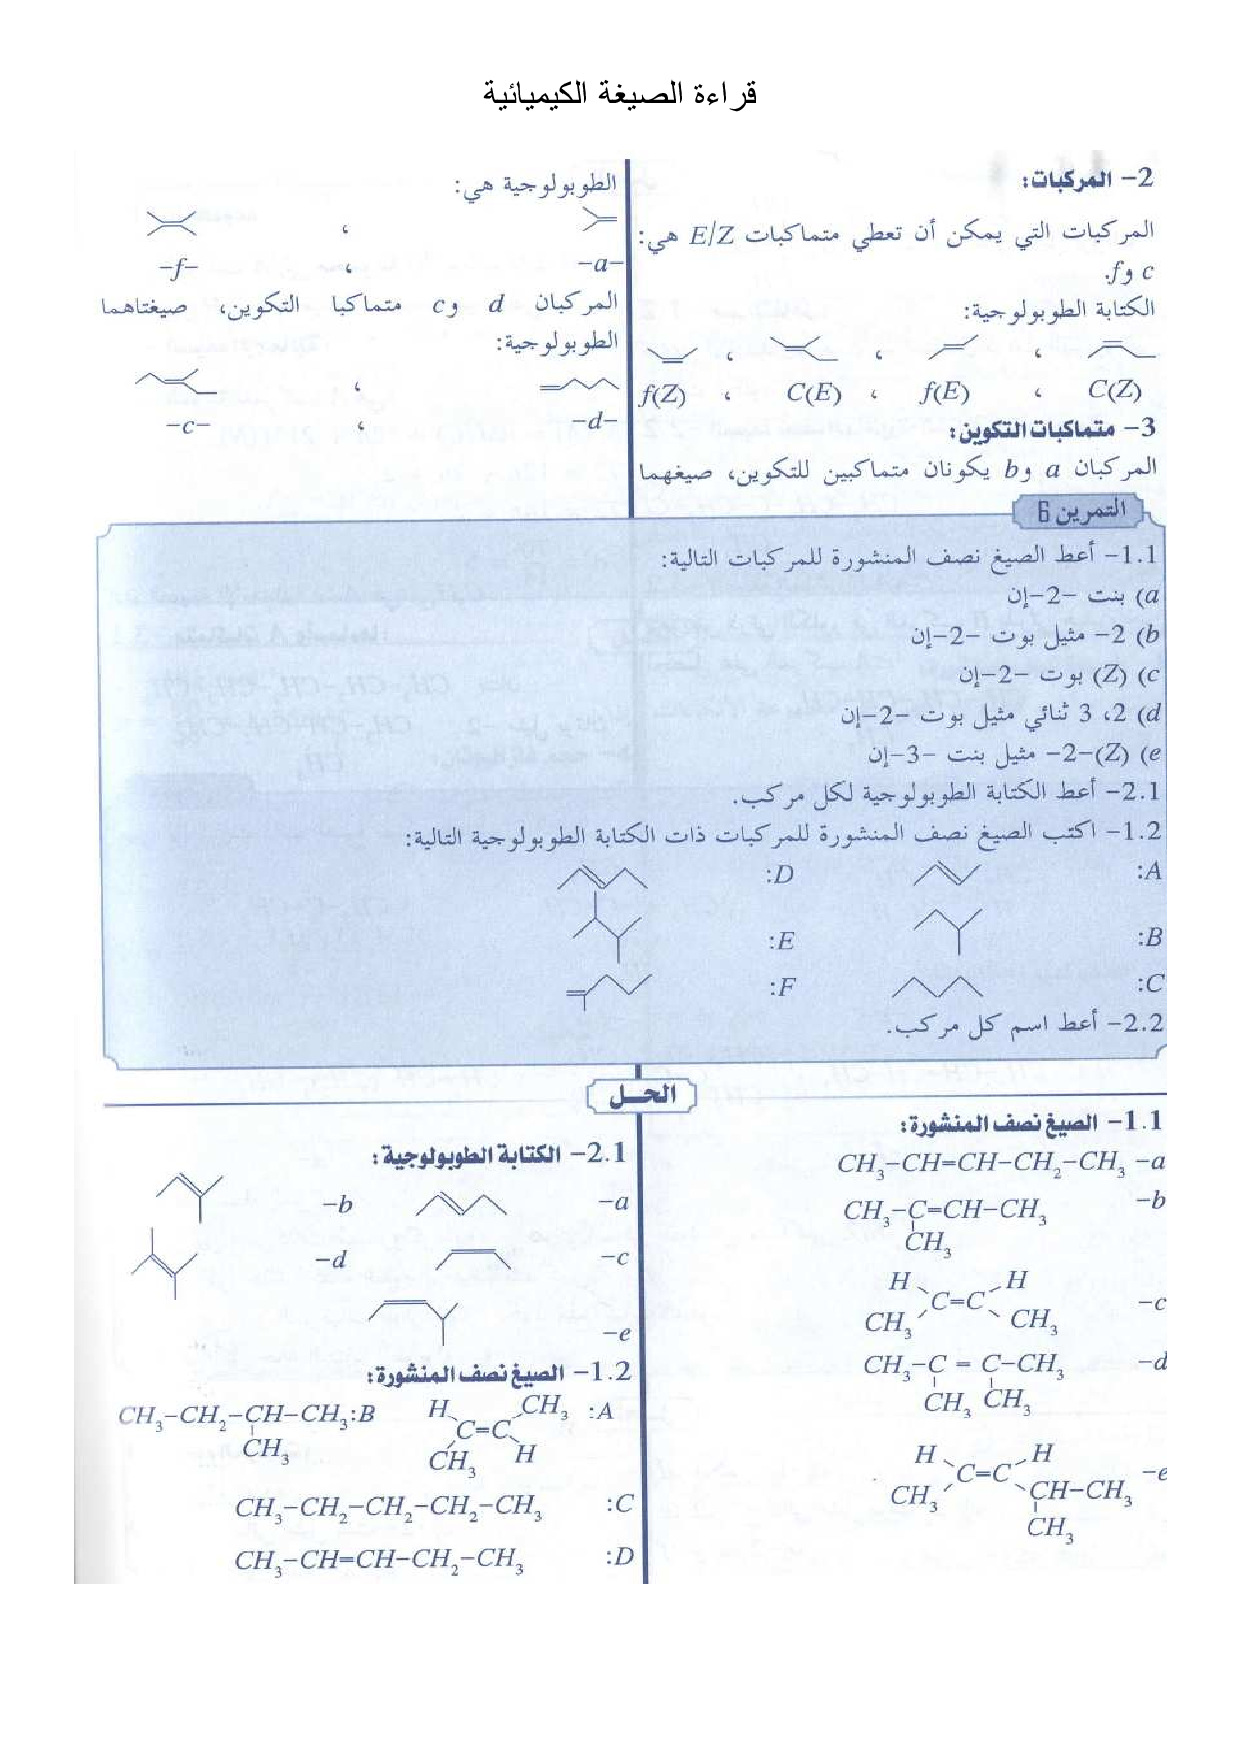 قراءة الصيغة الكيميائية
2- المركبات:
المركبات التي يمكن أن تعطي متماكبات E/Z هي:
c و f.
الكتابة الطوبولوجية:
C(Z) ، f(E) ، C(E) ، f(Z)
3- متماكبات التكوين:
المركبان a و b يكونان متماكبين للتكوين، صيغهما
الطوبولوجية هي:
-a- ، -f-
المركبان d و c متماكبا التكوين، صيغتاهما
الطوبولوجية:
-d- ، -c-
التمرين 6
1.1- أعط الصيغ نصف المنشورة للمركبات التالية:
a) بنت -2-إن
b) 2- مثيل بوت -2-إن
c) (Z) بوت -2-إن
d) 2، 3 ثنائي مثيل بوت -2-إن
e) (Z)-2- مثيل بنت -3-إن
2.1- أعط الكتابة الطوبولوجية لكل مركب.
1.2- اكتب الصيغ نصف المنشورة للمركبات ذات الكتابة الطوبولوجية التالية:
A: D:
B: E:
C: F:
2.2- أعط اسم كل مركب.
الحل
1.1- الصيغ نصف المنشورة:
a- CH₃-CH=CH-CH₂-CH₃
b- CH₃-C=CH-CH₃
CH₃
H H
c- C=C
CH₃ CH₃
d- CH₃-C = C-CH₃
CH₃ CH₃
H H
e- C=C
CH₃ CH-CH₃
CH₃
2.1- الكتابة الطوبولوجية:
a- b-
c- d-
e-
1.2- الصيغ نصف المنشورة:
A: H CH₃ B: CH₃-CH₂-CH-CH₃
C=C
CH₃ H CH₃
C: CH₃-CH₂-CH₂-CH₂-CH₃
D: CH₃-CH=CH-CH₂-CH₃